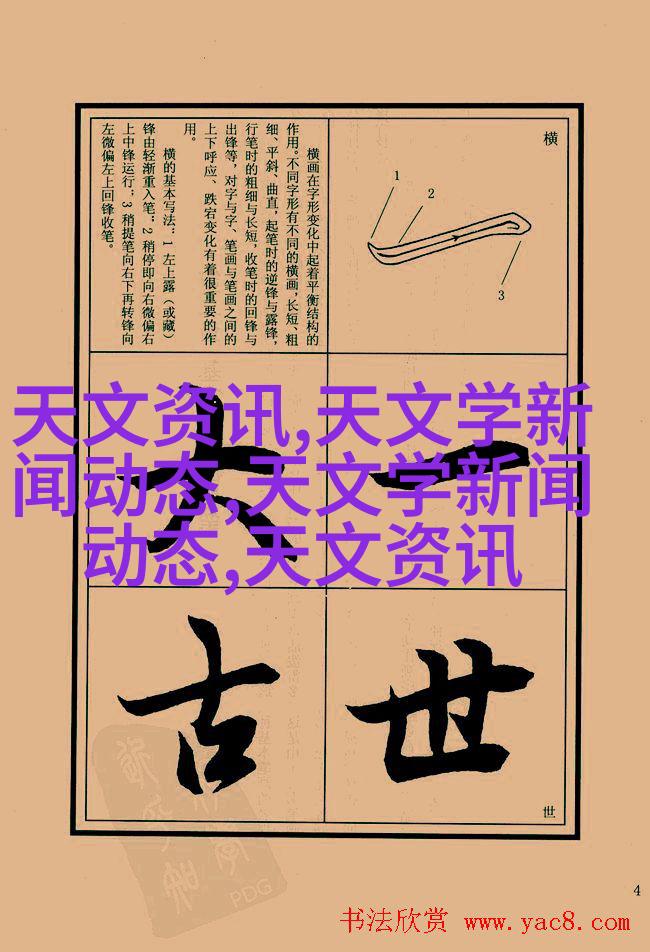 横
1
2
3
横画在字形变化中起着平衡结构的
作用。不同字形有不同的横画，长短、粗
细、平斜、曲直，起笔时的逆锋与露锋，
行笔时的粗细与长短，收笔时的回锋与
出锋等，对字与字、笔画与笔画之间的
上下呼应、跌宕变化有着很重要的作
用。
横的基本写法：1 左上露（或藏）
锋由轻渐重入笔；2 稍停即向右微偏右
上中锋运行；3 稍提笔向右下再转锋向
左微偏左上回锋收笔。
天文资讯,天文学新
闻动态,天文学新闻
动态,天文资讯
一
大
世
古
世
PDG
4
书法欣赏 www.yac8.com